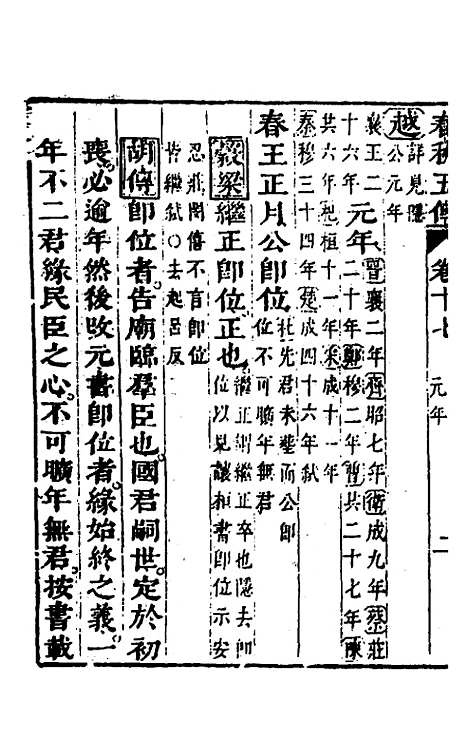 春秋五傳 卷十七 元年 二
越 詳見隱公元年
襄王二十六年 元年 晉襄二年齊昭七年衛成九年蔡莊二十年鄭穆二年曹共二十七年陳共六年杞桓十一年宋成十一年秦穆三十四年楚成四十六年
春王正月公即位 杜先君未葬而公即位不可曠年無君
穀梁繼正即位正也 繼正謂繼正卒也隱去即位以見讓桓書即位示安忍莊閔僖不言即位皆繼弒○去起呂反
胡傳即位者告廟臨羣臣也國君嗣世定於初
喪必逾年然後改元書即位者緣始終之義一
年不二君緣民臣之心不可曠年無君按書載